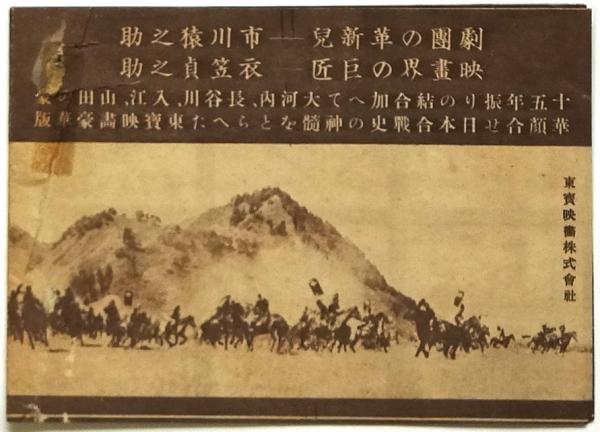 劇團の革新兒──市川猿之助
映畫界の巨匠──衣笠貞之助
十五年振りの結合加へて大河内、長谷川、入江、山田の豪
華顔合せ日本合戰史の神髓をとらへた東寶映畵豪華版
東寳映畵株式會社